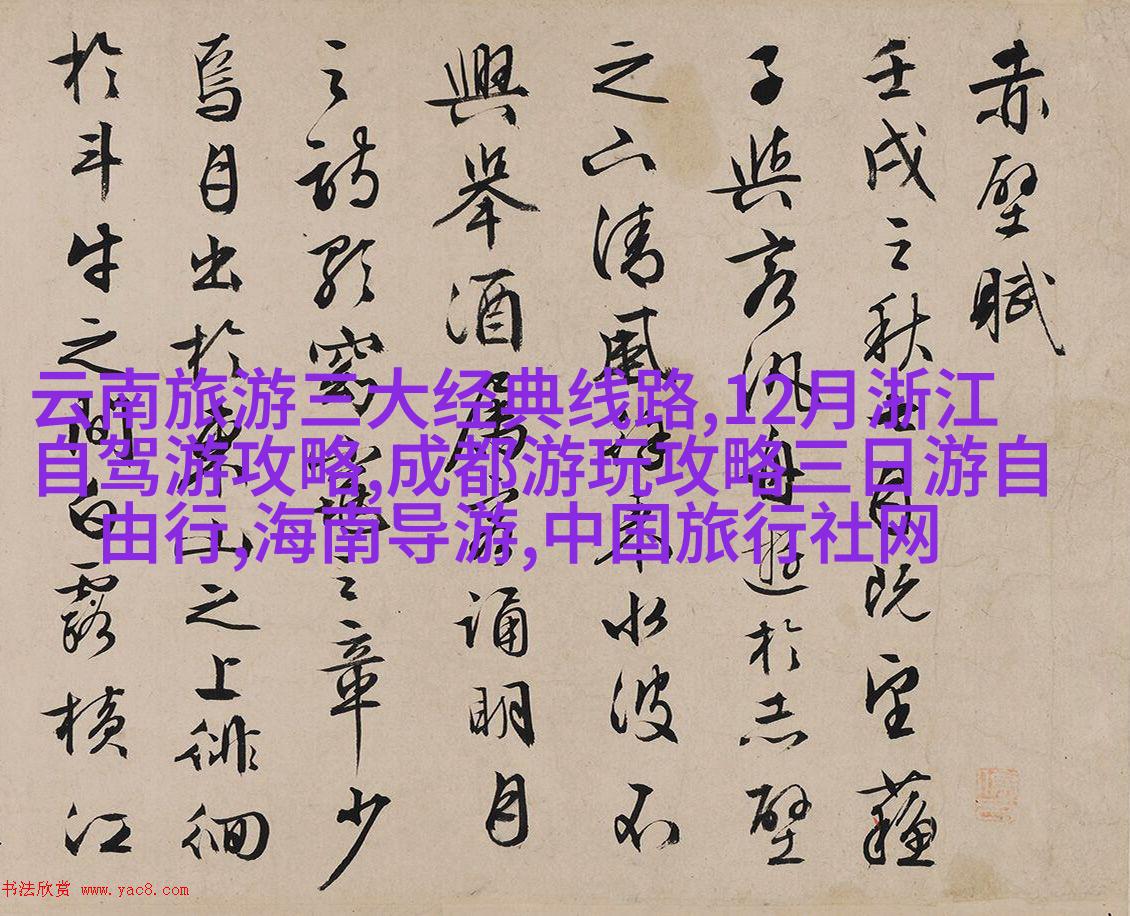 赤壁賦
壬戌之秋七月既望蘇
子與客汎舟遊於赤壁
之下清風徐來水波不
興舉酒屬客誦明月
之詩歌窈窕之章少
焉月出於東山之上徘徊
於斗牛之間白露橫江
云南旅游三大经典线路,12月浙江
自驾游攻略,成都游玩攻略三日游自
由行,海南导游,中国旅行社网
书法欣赏 www.yac8.com